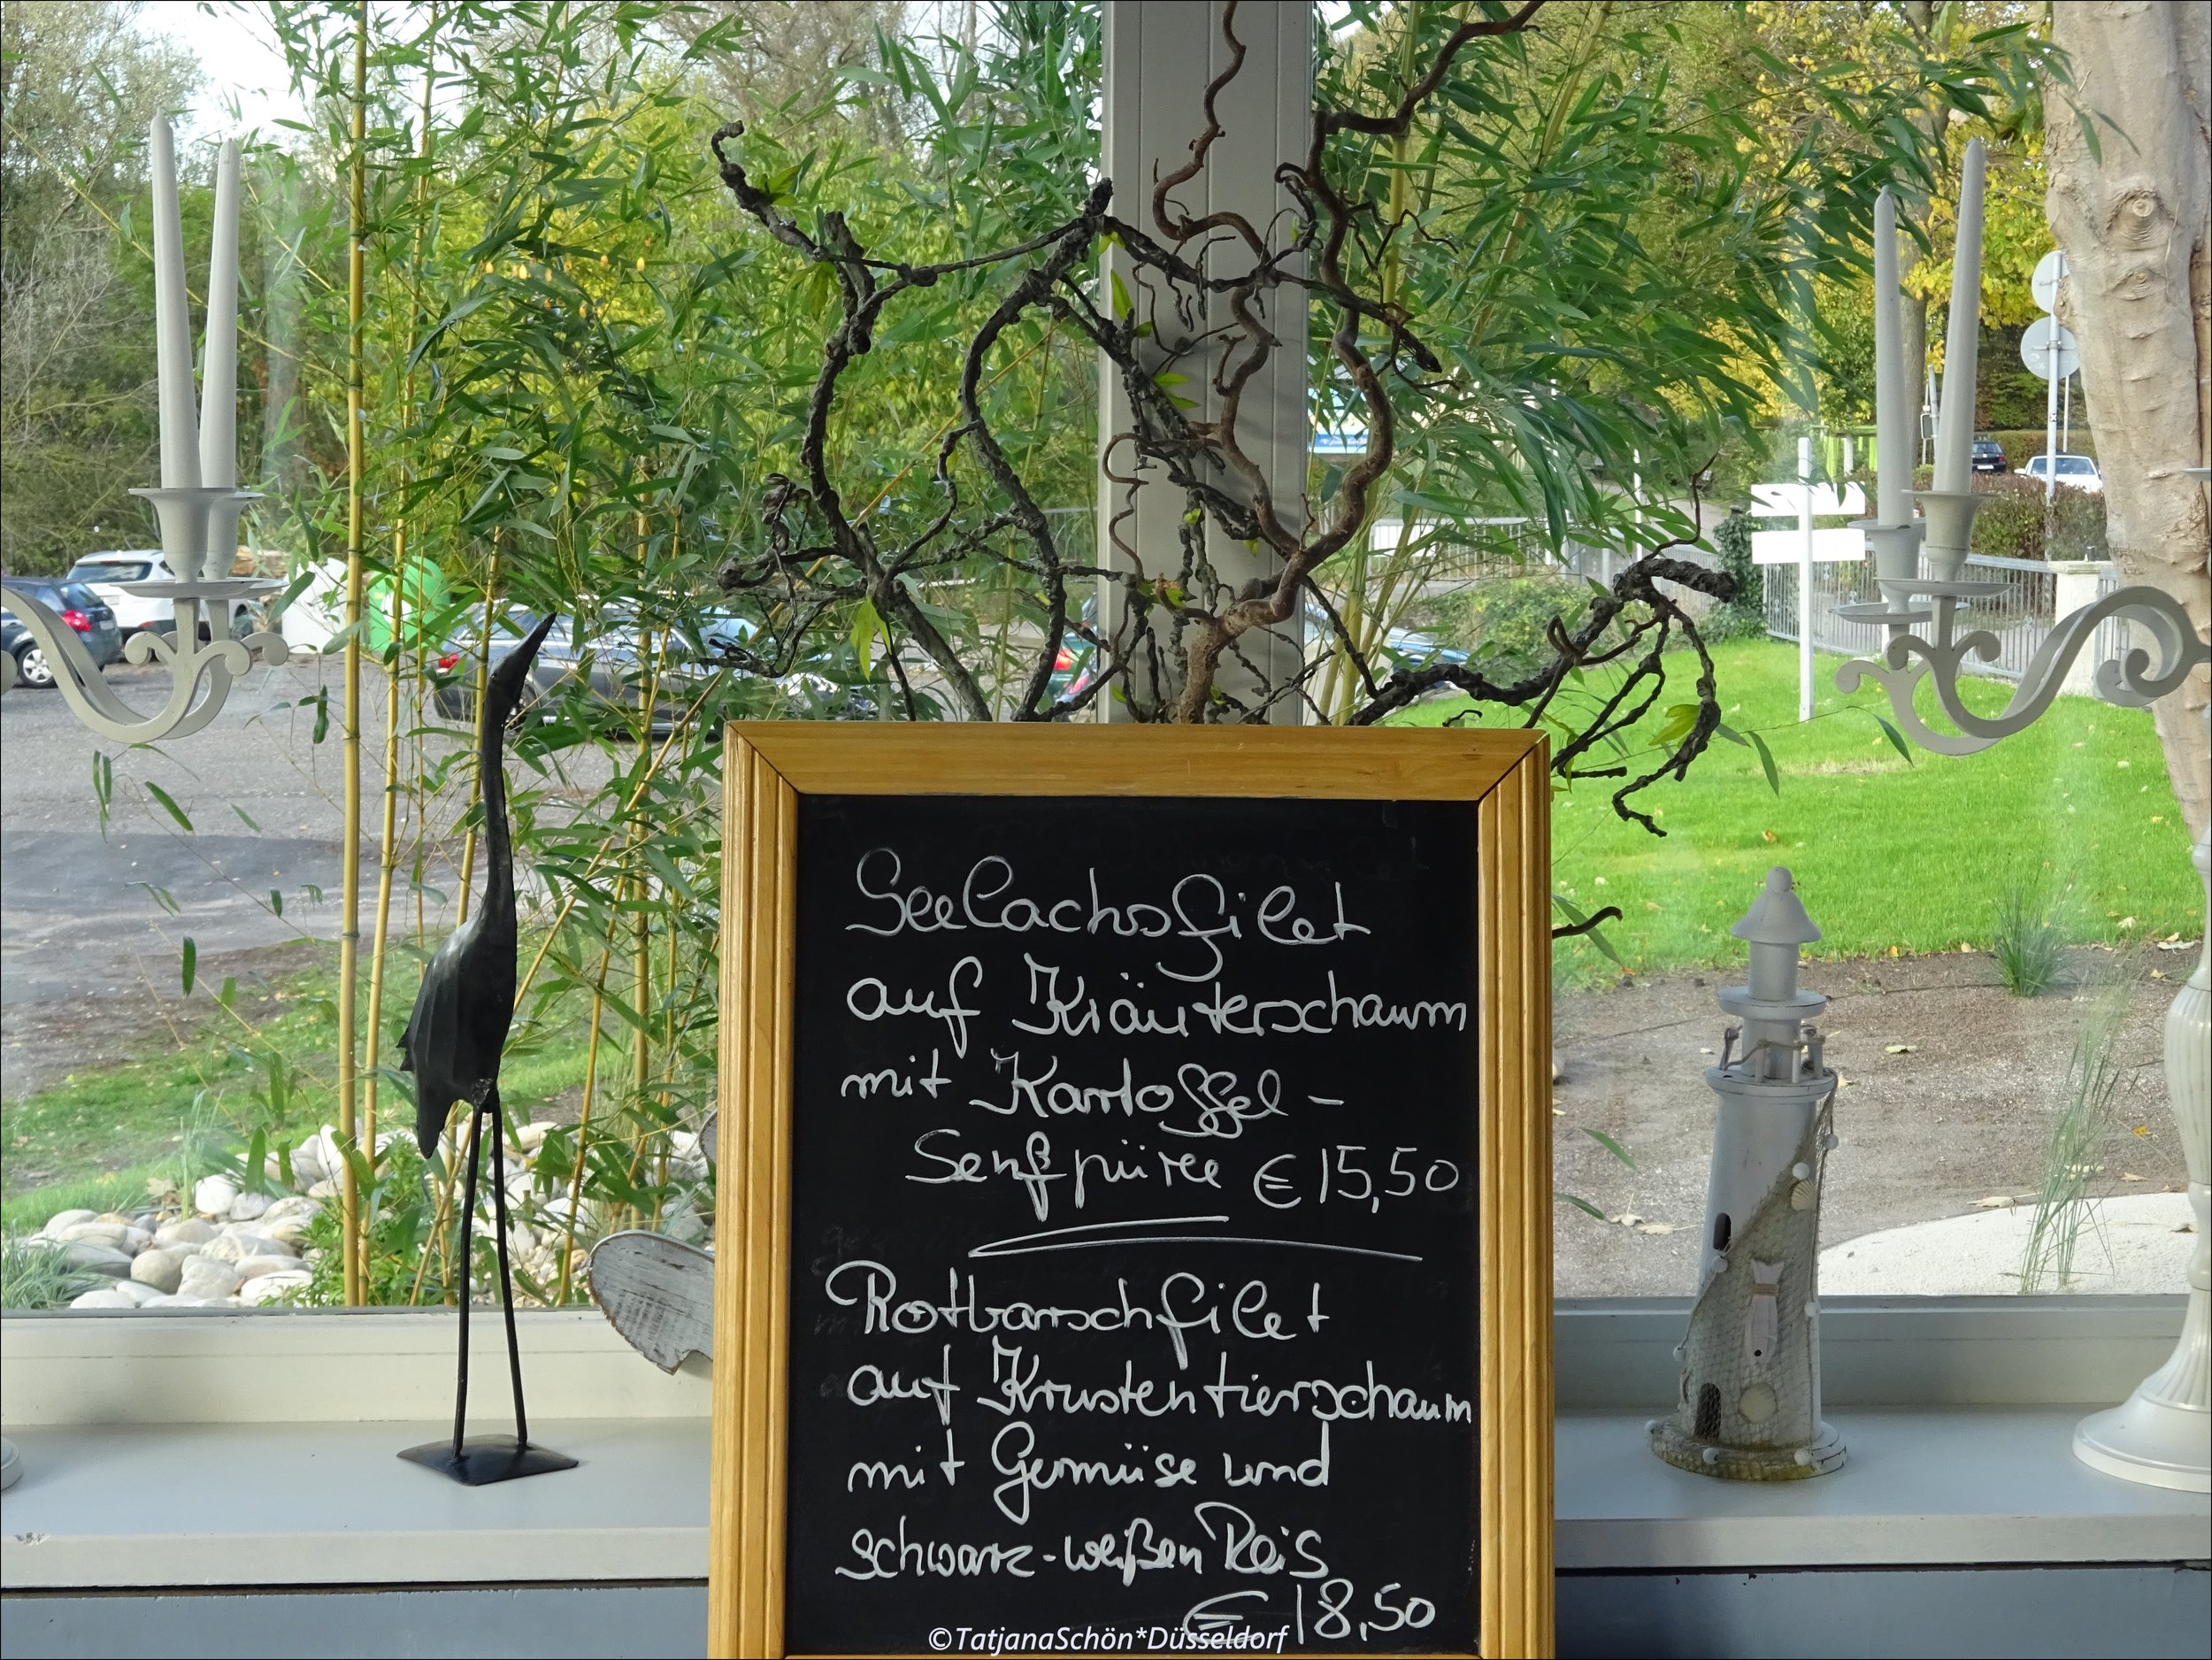 Seelachsfilet
auf Kräuterschaum
mit Kartoffel-
Senfpüree €15,50
Rotbarschfilet
auf Krustentierschaum
mit Gemüse und
schwarz-weißen Reis
€ 18,50
©TatjanaSchön*Düsseldorf